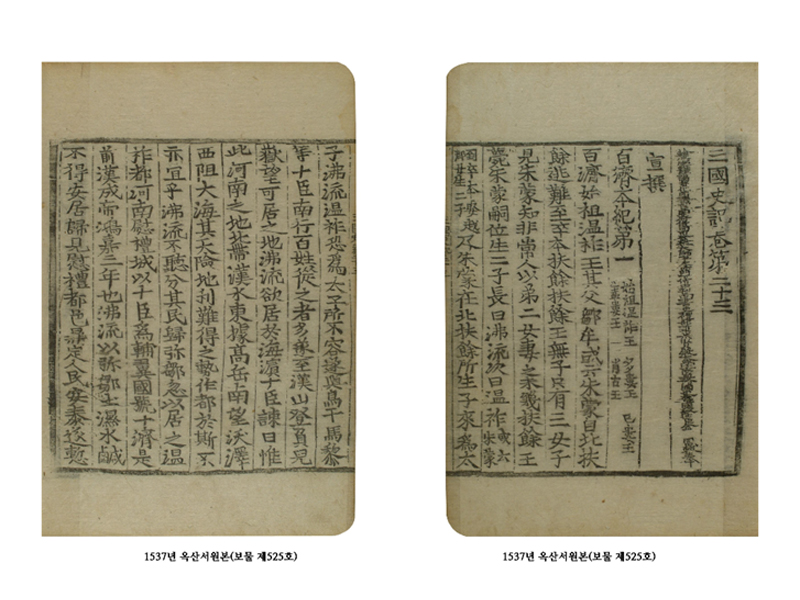 三國史記卷第二十三
宣撰
百濟本紀第一 始祖溫祚王 多婁王 己婁王 蓋婁王 肖古王
百濟始祖溫祚王其父鄒牟或云朱蒙自北扶
餘逃難至卒本扶餘扶餘王無子只有三女子
見朱蒙知非常人以第二女妻之未幾扶餘王
薨朱蒙嗣位生二子長曰沸流次曰溫祚 或云朱蒙
到卒本娶越郡女生二子 及朱蒙在北扶餘所生子來爲太
子沸流溫祚恐爲太子所不容遂與烏干馬黎
等十臣南行百姓從之者多遂至漢山登負兒
嶽望可居之地沸流欲居於海濱十臣諫曰惟
此河南之地北帶漢水東據高岳南望沃澤
西阻大海其天險地利難得之勢作都於斯不
亦宜乎沸流不聽分其民歸弥鄒忽以居之溫
祚都河南慰禮城以十臣爲輔翼國號十濟是
前漢成帝鴻嘉三年也沸流以弥鄒土濕水鹹
不得安居歸見慰禮都邑鼎定人民安泰遂慙
1537년 옥산서원본(보물 제525호)
1537년 옥산서원본(보물 제525호)